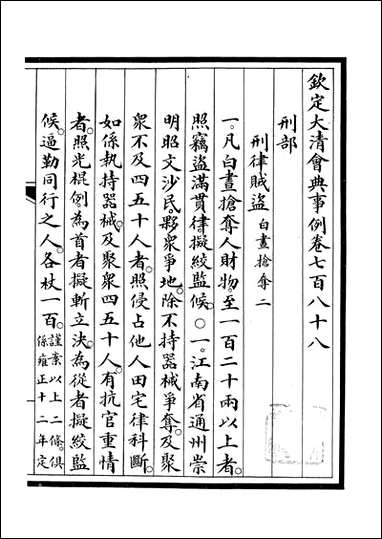 欽定大清會典事例卷七百八十八
刑部
刑律賊盜 白晝搶奪二
一。凡白晝搶奪人財物。至一百二十兩以上者。
照竊盜滿貫律擬絞監候。〇一。江南省通州崇
明昭文沙民。夥衆爭地。除不持器械爭奪。及聚
衆不及四五十人者。照侵占他人田宅律科斷。
如係執持器械。及聚衆四五十人。有抗官重情
者。照光棍例。為首者擬斬立決。為從者擬絞監
候。逼勒同行之人。各杖一百。謹案以上二條。俱
係雍正十二年定